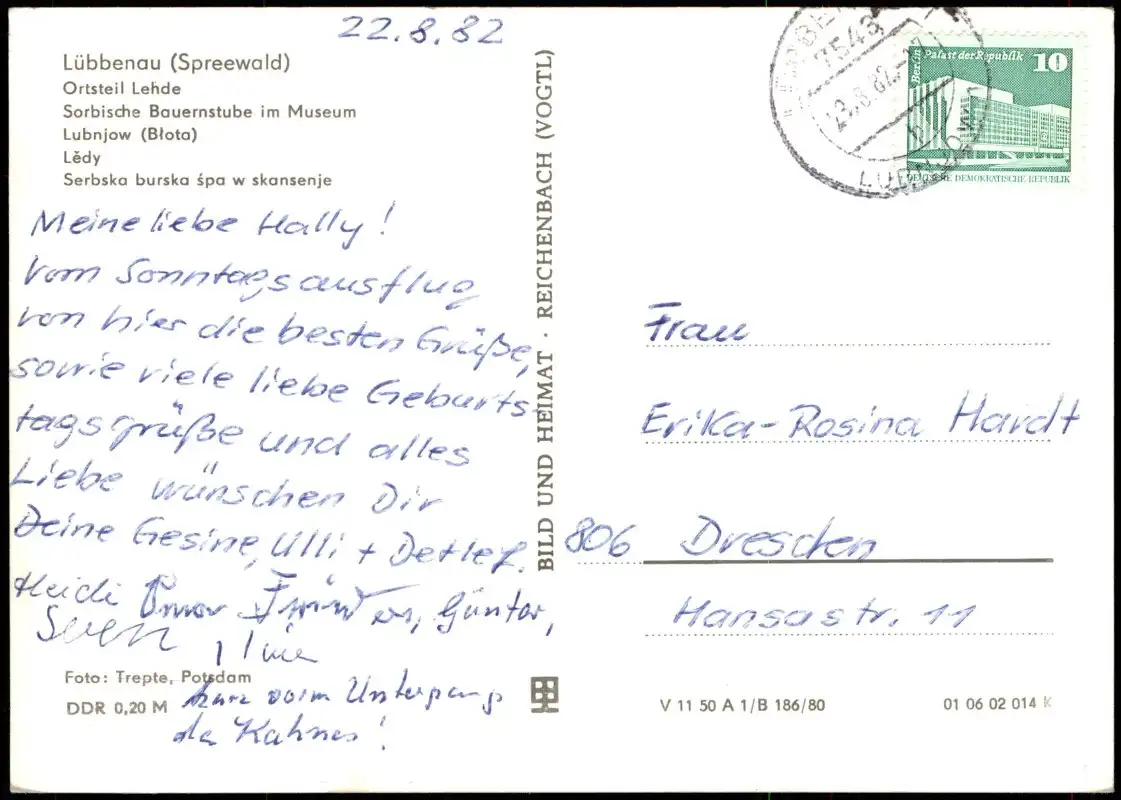 22.8.82
Lübbenau (Spreewald)
Ortsteil Lehde
Sorbische Bauernstube im Museum
Lubnjow (Błota)
Lědy
Serbska burska śpa w skansenje
Meine liebe Hally!
Vom Sonntagsausflug
von hier die besten Grüße,
sowie viele liebe Geburts-
tagsgrüße und alles
Liebe wünschen Dir
Deine Gesine, Ulli + Detlef.
Heidi Günter,
Sven
kurz vorm Untergang
des Kahnes!
Foto: Trepte, Potsdam
DDR 0,20 M
BILD UND HEIMAT · REICHENBACH (VOGTL)
7543
23.8.82-17
h
LUBNJOW
Berlin Palast der Republik 10
DEUTSCHE DEMOKRATISCHE REPUBLIK
Frau
Erika-Rosina Hardt
806 Dresden
Hansastr. 11
V 11 50 A 1/B 186/80
01 06 02 014 K